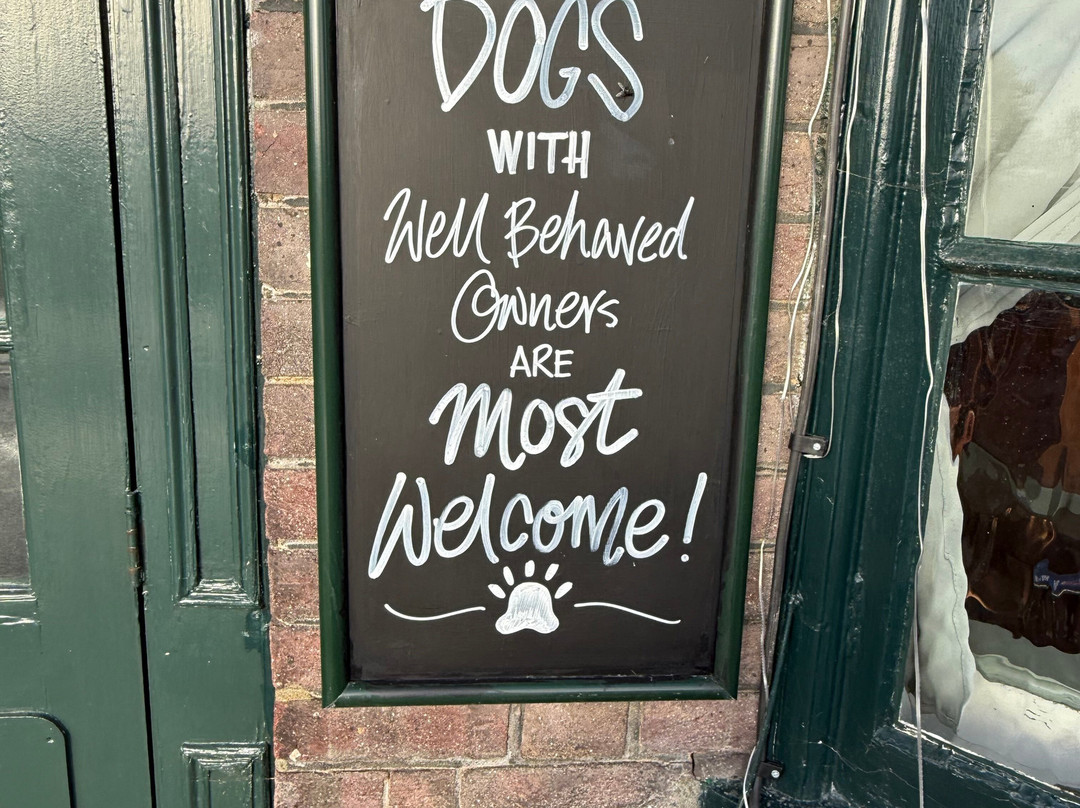 DOGS
WITH
Well Behaved
Owners
ARE
Most
Welcome!